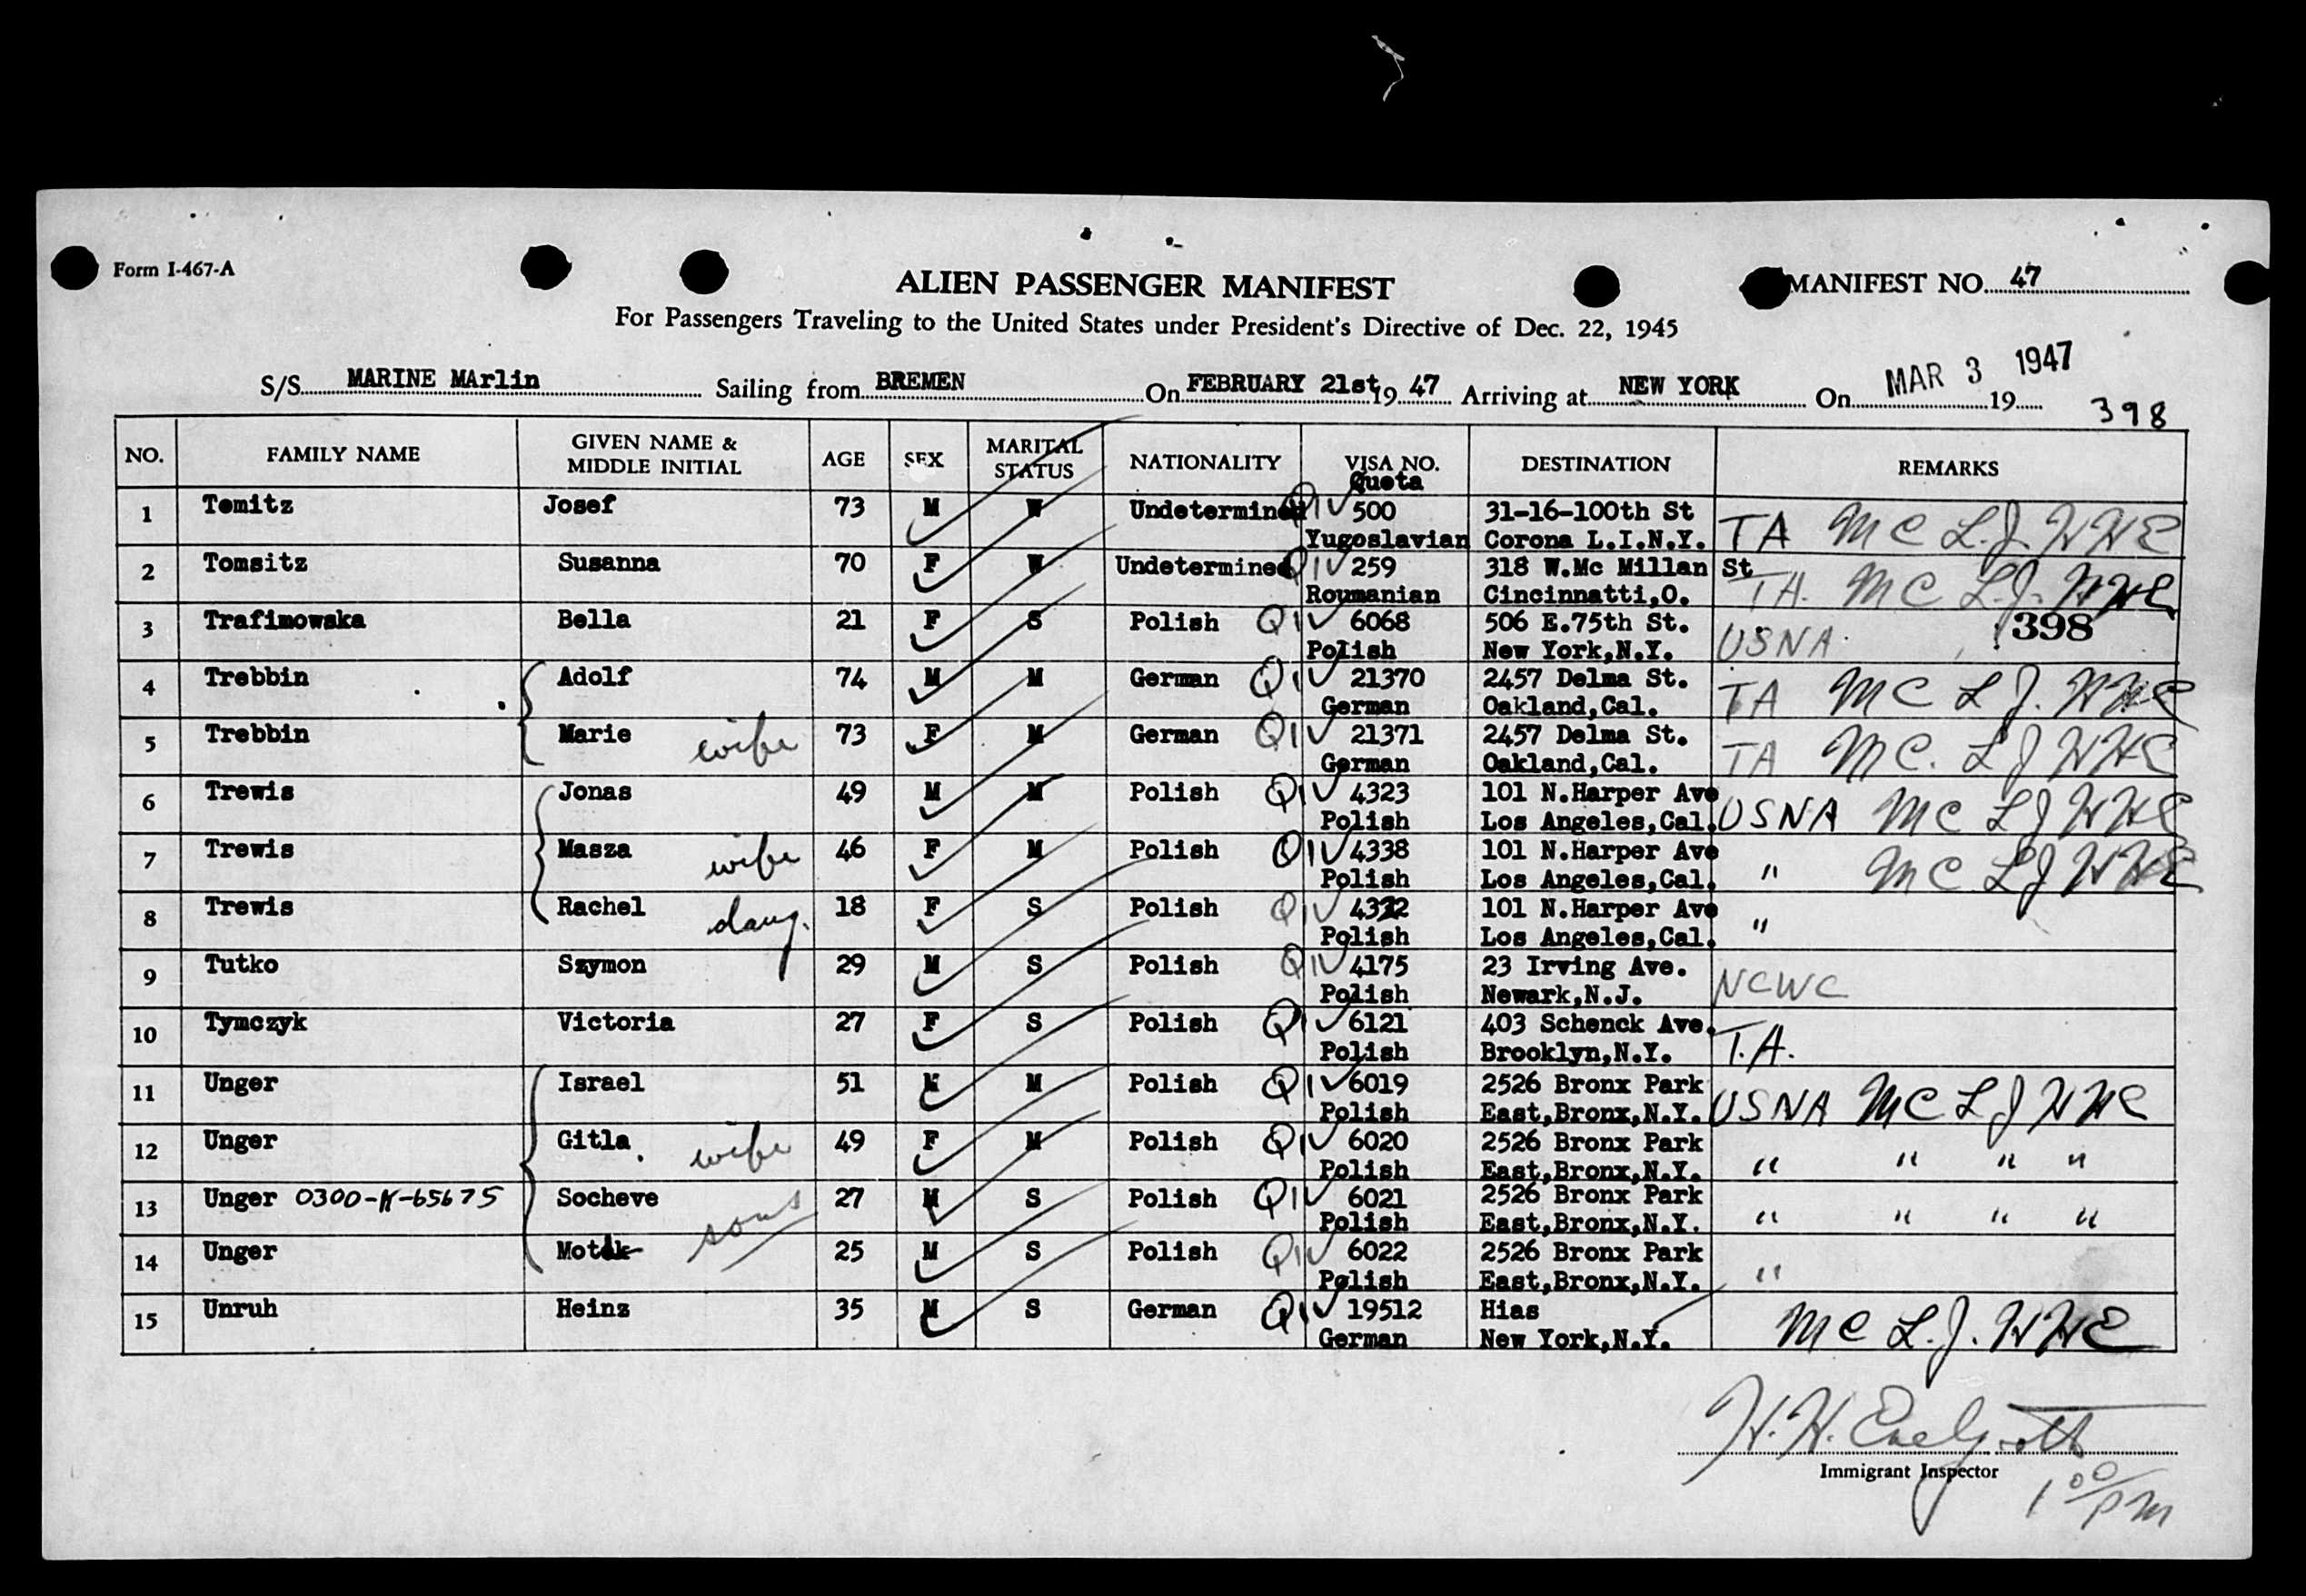 Form I-467-A
ALIEN PASSENGER MANIFEST
MANIFEST NO. 47
For Passengers Traveling to the United States under President's Directive of Dec. 22, 1945
S/S MARINE MArlin Sailing from BREMEN On FEBRUARY 21st 19 47 Arriving at NEW YORK On MAR 3 1947 19
398
NO. FAMILY NAME GIVEN NAME & MIDDLE INITIAL AGE SEX MARITAL STATUS NATIONALITY VISA NO. Quota DESTINATION REMARKS
1 Tomitz Josef 73 M W Undetermined QIV 500 31-16-100th St TA MC L.J. HHE
Yugoslavian Corona L.I.N.Y.
2 Tomsitz Susanna 70 F W Undetermined QIV 259 318 W.Mc Millan St TA. MC L.J. HHE
Roumanian Cincinnatti,O.
3 Trafimowska Bella 21 F S Polish QIV 6068 506 E.75th St. USNA 398
Polish New York,N.Y.
4 Trebbin Adolf 74 M M German QIV 21370 2457 Delma St. TA MC L J. HHE
German Oakland,Cal.
5 Trebbin Marie wife 73 F M German QIV 21371 2457 Delma St. TA MC. L J HHE
German Oakland,Cal.
6 Trewis Jonas 49 M M Polish QIV 4323 101 N.Harper Ave USNA MC L J HHE
Polish Los Angeles,Cal.
7 Trewis Masza wife 46 F M Polish QIV 4338 101 N.Harper Ave " MC L J HHE
Polish Los Angeles,Cal.
8 Trewis Rachel daug. 18 F S Polish QIV 4322 101 N.Harper Ave "
Polish Los Angeles,Cal.
9 Tutko Szymon 29 M S Polish QIV 4175 23 Irving Ave. NCWC
Polish Newark,N.J.
10 Tymczyk Victoria 27 F S Polish QIV 6121 403 Schenck Ave. T.A.
Polish Brooklyn,N.Y.
11 Unger Israel 51 M M Polish QIV 6019 2526 Bronx Park USNA MC L J HHE
Polish East,Bronx,N.Y.
12 Unger Gitla wife 49 F M Polish QIV 6020 2526 Bronx Park " " " "
Polish East,Bronx,N.Y.
13 Unger 0300-K-65675 Socheve sons 27 M S Polish QIV 6021 2526 Bronx Park " " " "
Polish East,Bronx,N.Y.
14 Unger Motek 25 M S Polish QIV 6022 2526 Bronx Park "
Polish East,Bronx,N.Y.
15 Unruh Heinz 35 M S German QIV 19512 Hias MC L.J. HHE
German New York,N.Y.
H.H.
Immigrant Inspector
1 00 PM